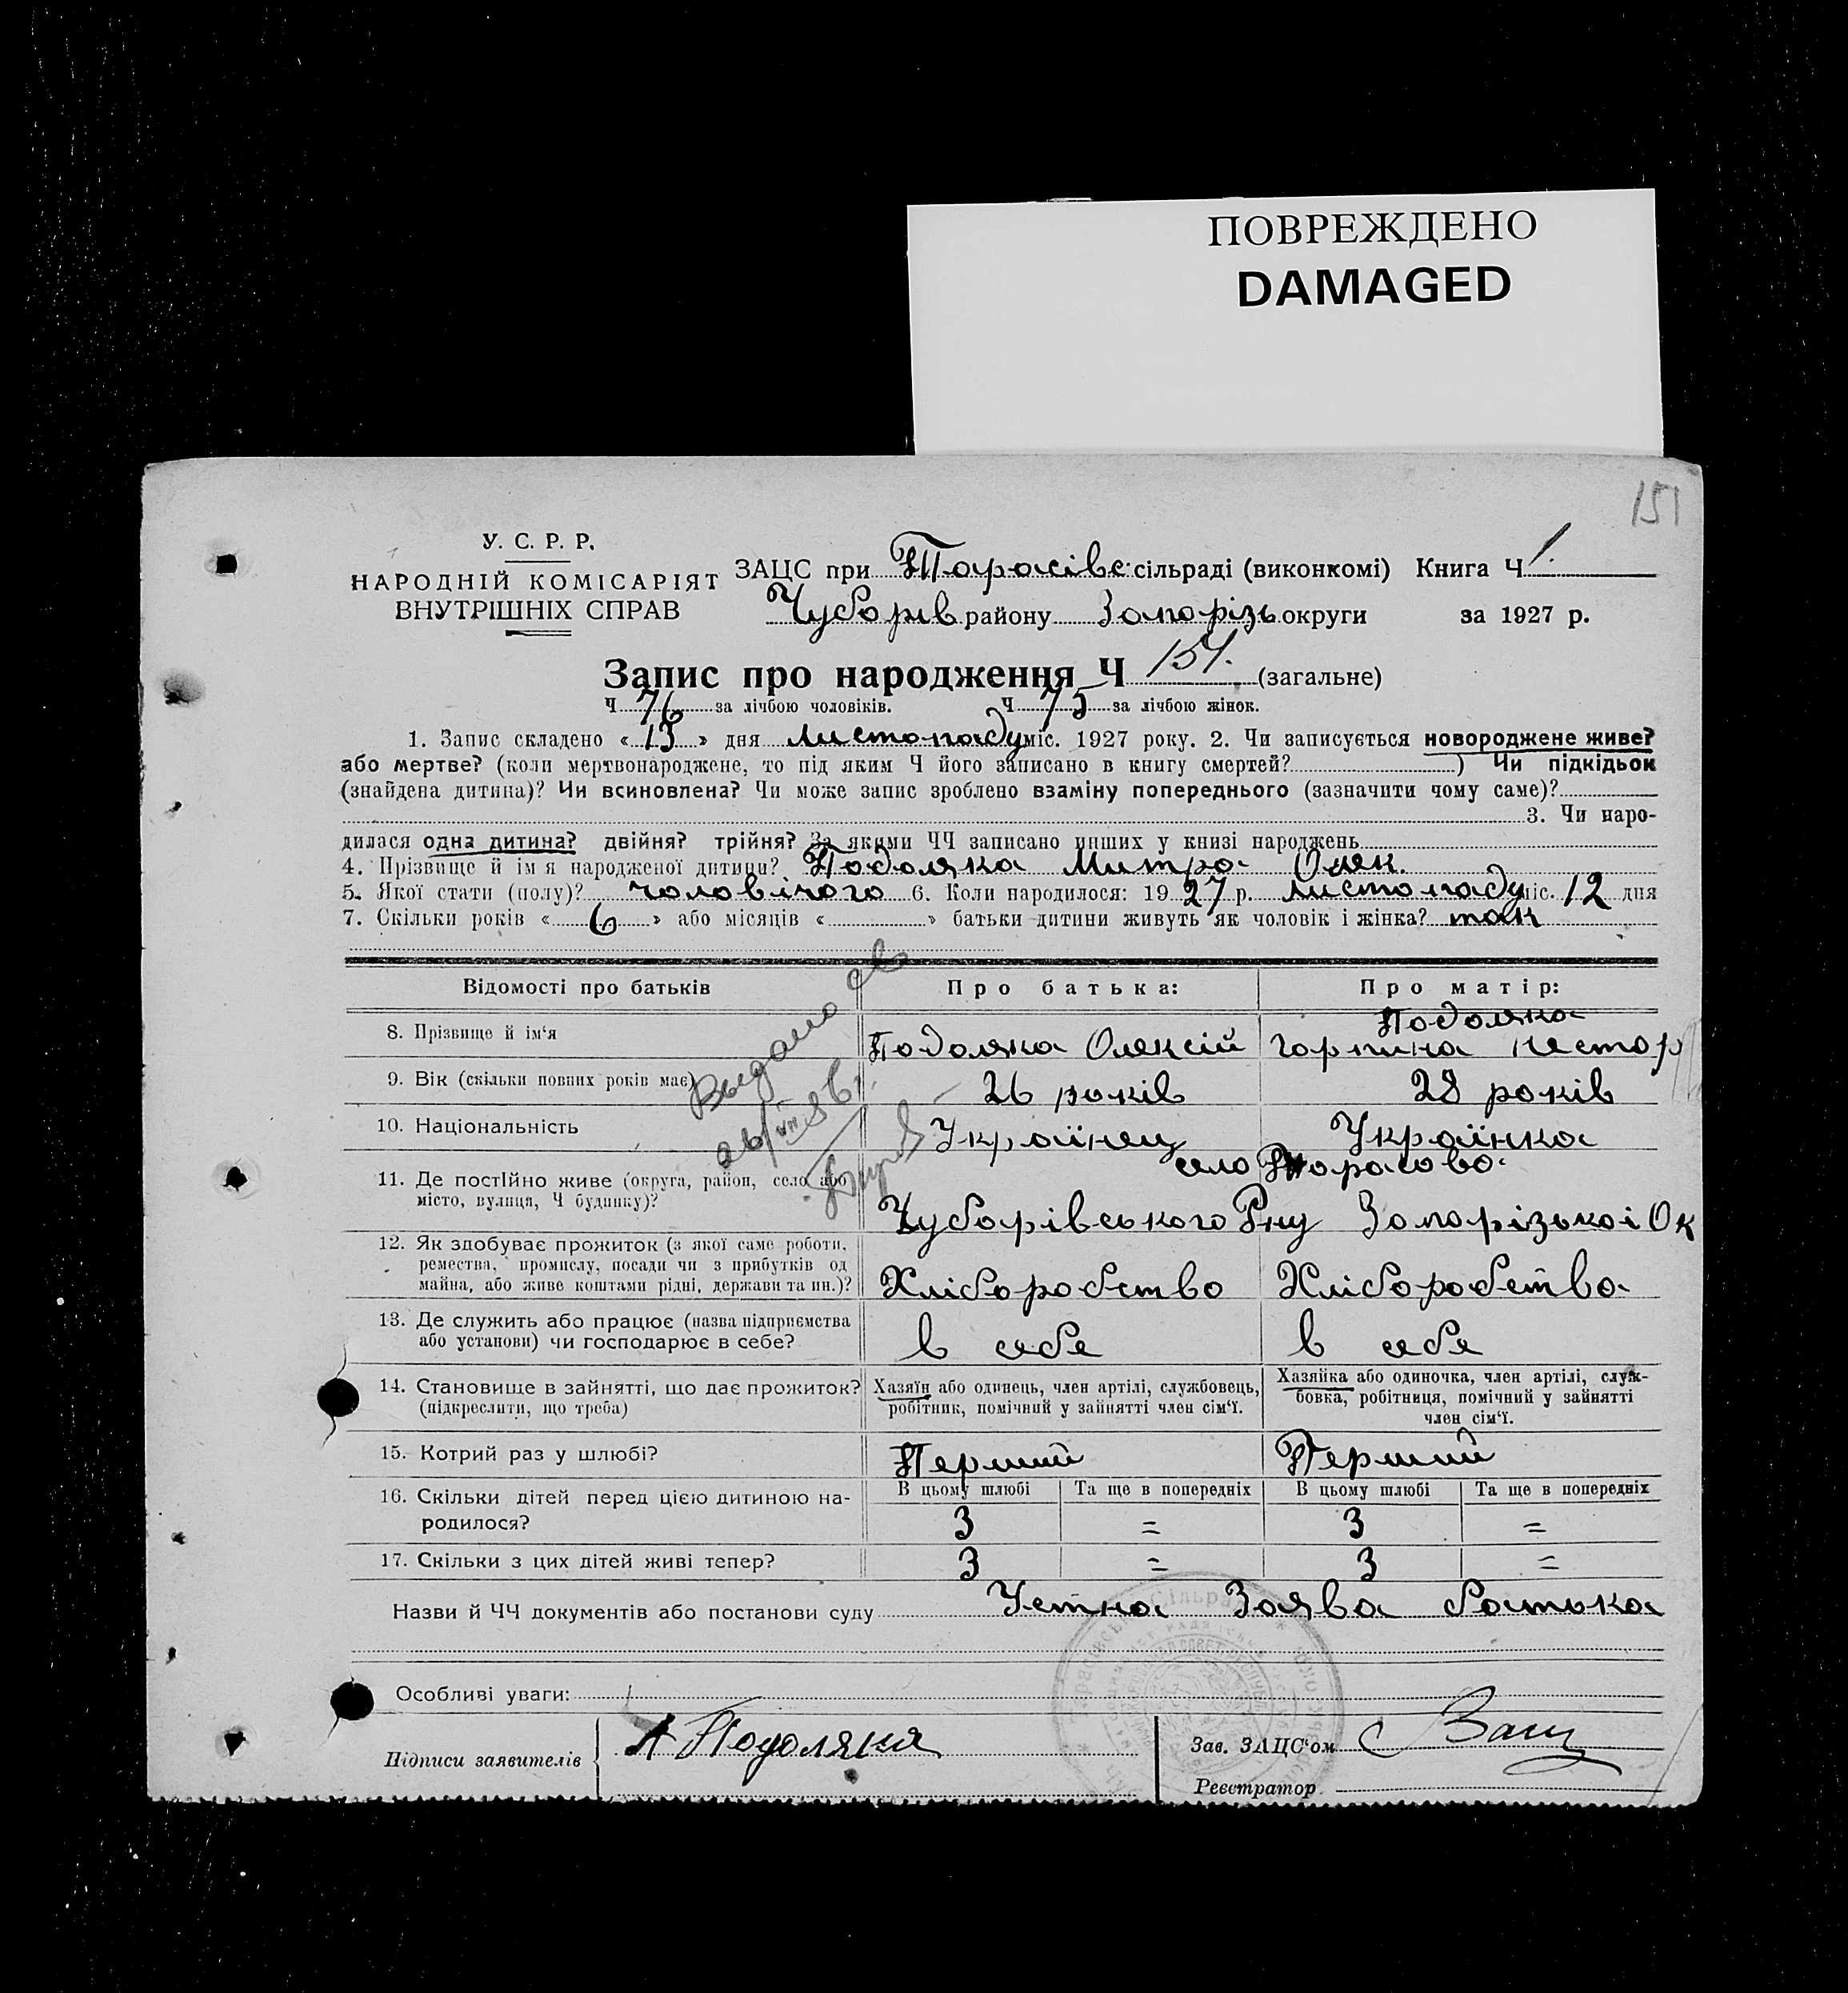 ПОВРЕЖДЕНО
DAMAGED
151
У. С. Р. Р.
НАРОДНІЙ КОМІСАРІЯТ
ВНУТРІШНІХ СПРАВ
ЗАЦС при Тарасівс. сільраді (виконкомі) Книга Ч 1
Чубарів району Запорізь округи за 1927 р.
Запис про народження Ч 151. (загальне)
Ч 76 за лічбою чоловіків. Ч 75 за лічбою жінок.
1. Запис складено « 13 » дня листопаду міс. 1927 року. 2. Чи записується новороджене живе?
або мертве? (коли мертвонароджене, то під яким Ч його записано в книгу смертей? ) Чи підкідьок
(знайдена дитина)? Чи всиновлена? Чи може запис зроблено взаміну попереднього (зазначити чому саме)?
3. Чи наро-
дилася одна дитина? двійня? трійня? За якими ЧЧ записано инших у книзі народжень
4. Прізвище й ім я народженої дитини? Подоляка Митро Олек.
5. Якої стати (полу)? чоловічого 6. Коли народилося: 19 27 р. листопаду міс. 12 дня
7. Скільки років « 6 » або місяців « » батьки дитини живуть як чоловік і жінка? так
Відомості про батьків Про батька: Про матір:
8. Прізвище й ім'я Подоляка Олексій Подоляка Горпина Нестор
9. Вік (скільки повних років має) 26 років 28 років
10. Національність Українец Українка
Выдано св
11. Де постійно живе (округа, район, село або
місто, вулиця, Ч будинку)?
село Тарасово
Чубарівського Рну Запорізькоі Ок
12. Як здобуває прожиток (з якої саме роботи,
ремества, промислу, посади чи з прибутків од
майна, або живе коштами рідні, держави та ин.)?
Хліборобство Хліборобство
13. Де служить або працює (назва підприємства
або установи) чи господарює в себе?
в себе в себе
14. Становище в зайнятті, що дає прожиток?
(підкреслити, що треба)
Хазяїн або одинець, член артілі, службовець,
робітник, помічний у зайнятті член сім'ї.
Хазяйка або одиночка, член артілі, служ-
бовка, робітниця, помічний у зайнятті
член сім'ї.
15. Котрий раз у шлюбі? Перший Перший
16. Скільки дітей перед цією дитиною на-
родилося?
В цьому шлюбі Та ще в попередніх В цьому шлюбі Та ще в попередніх
3 = 3 =
17. Скільки з цих дітей живі тепер? 3 = 3 =
Назви й ЧЧ документів або постанови суду Устна Заява батька
Особливі уваги:
Підписи заявителів А Подоляка
Зав. ЗАЦС'ом
Реєстратор